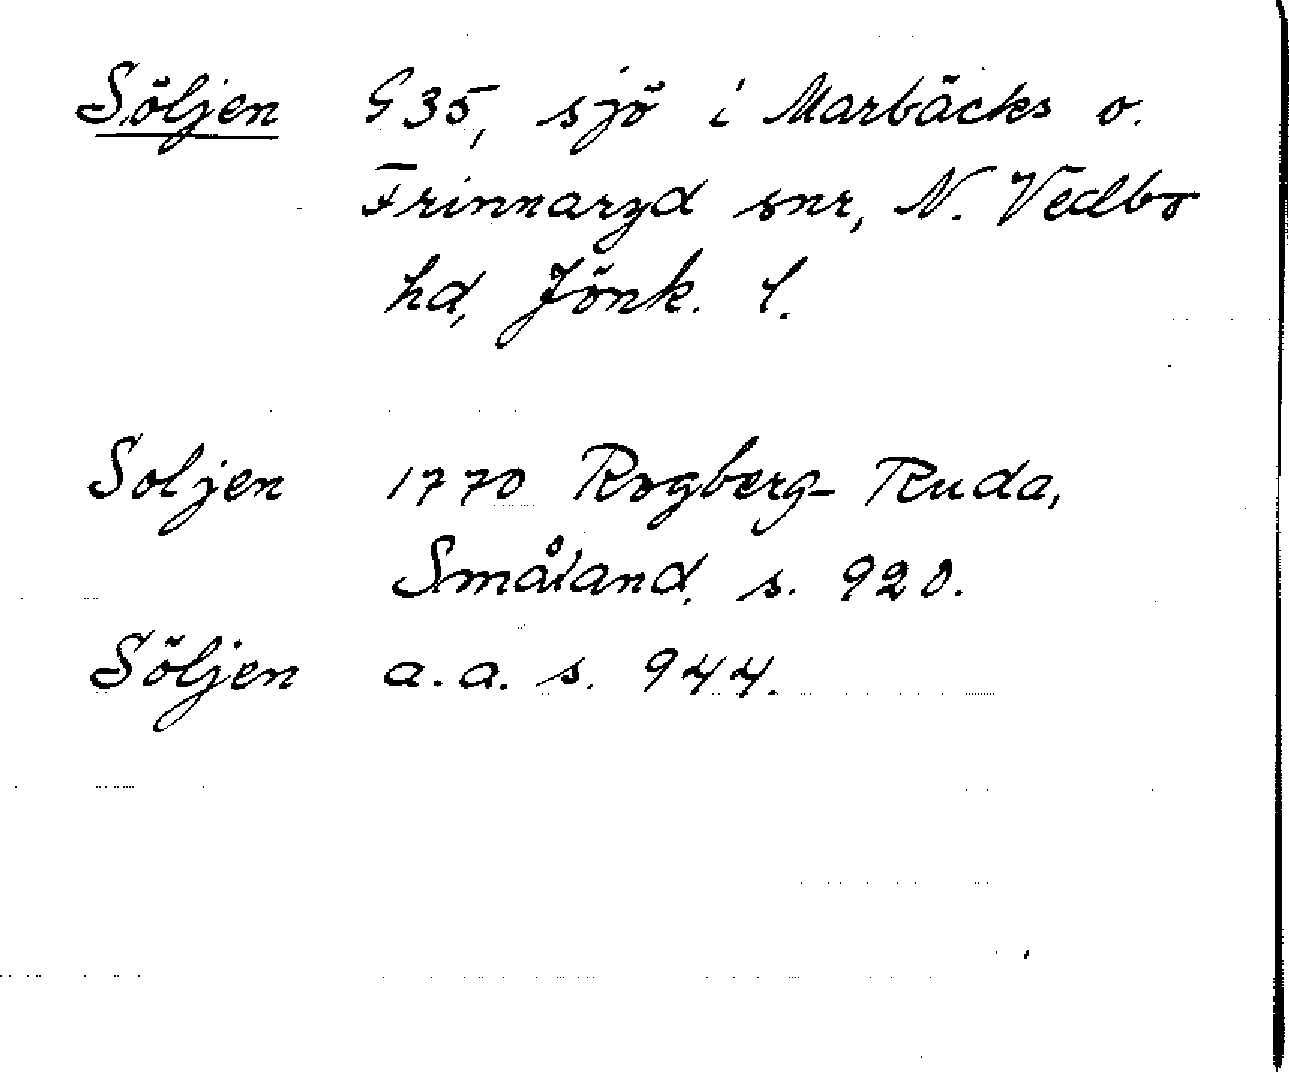 Söljen G35, sjö i Marbäcks o.
Frinnaryd snr, N. Vedbo
hd, Jönk. l.
Soljen 1770 Rogberg-Ruda,
Småland, s. 920.
Söljen a.a. s. 944.